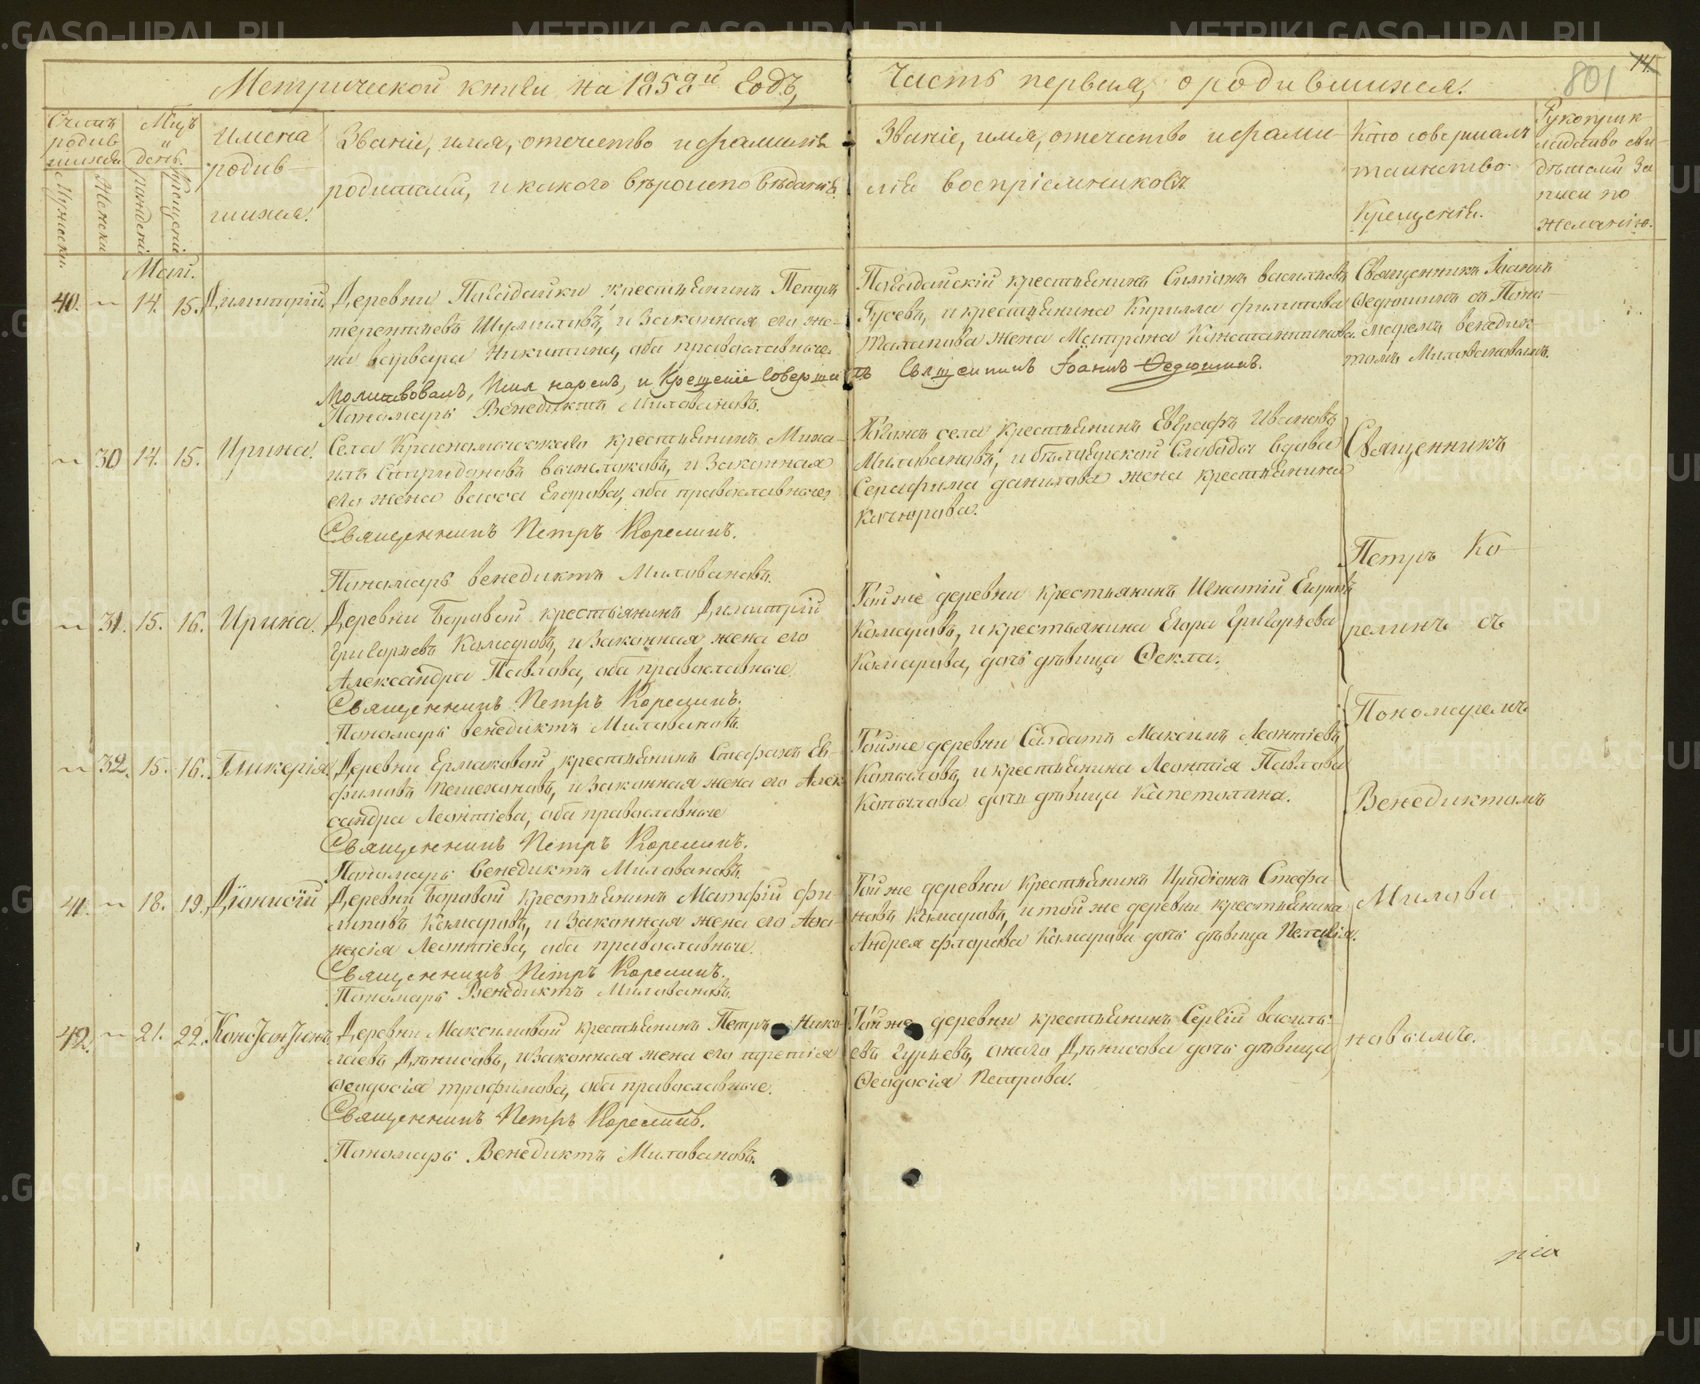 Метрической книги на 1858й Годъ,
Часть первая, о родившихся.
801
14
Счетъ родив-
шихся
Мужеска.
Женска
Мцъ и день.
рожденiя
крещенiя
Имена
родив-
шихся.
Званiе, имя, отечество и фамилiя
родителей, и какого вѣроисповѣданiя.
Званiе, имя, отечество и фами-
лiя воспрiемниковъ
Кто совершалъ
таинство
Крещенiя.
Рукоприк-
ладство сви-
дѣтелей за-
писи по
желанiю.
Май.
40. — 14. 15. Димитрiй.
Деревни крестьянинъ Петръ
терентьевъ и Законная его же-
на варвара Никитина, оба православные.
Молитвовалъ, Имя нарекъ, и Крещенiе Соверши
лъ Священникъ Iоаннъ Ѳедюшинъ.
Пономарь Венедиктъ Миловановъ.
крестьянинъ васильевъ
Гусевъ, и крестьянина Кирилла филипова
жена Матрона Константинова
Священникъ Iоаннъ
Ѳедюшинъ съ Поно-
маремъ венедик-
томъ Миловановымъ.
— 30 14. 15. Ирина.
Села крестьянинъ Миха-
илъ и Законная
его жена васса Егорова, оба православные.
Священникъ Петръ Корелинъ.
Пономарь венедиктъ Миловановъ.
села крестьянинъ Евграфъ Ивановъ
Миловановъ, и Слободы вдова
Серафима данилова жена крестьянина
— 31. 15. 16. Ирина.
Деревни Боровой крестьянинъ Димитрiй
Григорьевъ Комаровъ, и Законная жена его
Александра Павлова, оба православные
Священникъ Петръ Корелинъ.
Пономарь венедиктъ Миловановъ.
Той же деревни крестьянинъ Игнатiй Егоровъ
Комаровъ, и крестьянина Егора Григорьева
Комарова, дочь дѣвица Ѳекла.
— 32. 15. 16. Гликерiя.
Деревни Ермаковой, крестьянинъ Стефанъ Ев-
фимовъ и Законная жена его Алек-
сандра Леонтiева, оба православные
Священникъ Петръ Корелинъ.
Пономарь Венедиктъ Миловановъ
Той же деревни Солдатъ Максимъ Леонтiевъ
Копыловъ, и крестьянина Леонтiя Павлова
Копылова дочь дѣвица Капетолина.
41. — 18. 19. Дiонисiй
Деревни Боровой крестьянинъ Матфiй фи-
липовъ Комаровъ, и Законная жена его Афа-
насiя Леонтiева, оба православные.
Священникъ Петръ Корелинъ.
Пономарь Венедиктъ Миловановъ.
Той же деревни крестьянинъ Стефа-
новъ Комаровъ, и той же деревни крестьянина
Андрея фларова Комарова дочь дѣвица Пелагiя.
42. — 21. 22. Константинъ.
Деревни Максимовой крестьянинъ Петръ Нико-
лаевъ Денисовъ, и законная жена его
Ѳеодосiя трофимова, оба православные.
Священникъ Петръ Корелинъ.
Пономарь Венедиктъ Миловановъ.
Той же деревни крестьянинъ Сергiй василь-
евъ онаго Денисова дочь дѣвица
Ѳеодосiя Петрова.
Священникъ
Петръ Ко-
релинъ съ
Пономаремъ
Венедиктомъ
Милова-
новымъ.
METRIKI.GASO-URAL.RU